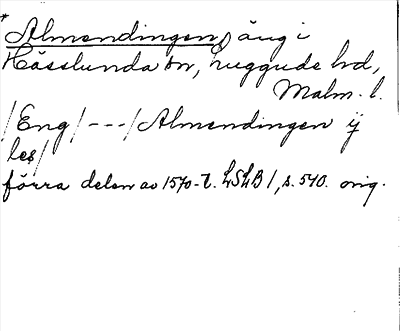 * Almendingen, äng i
Hässlunda sn, Luggude hd,
Malm. l.
/Eng/ --- /Almendingen ij
les/
förra delen av 1570-t. LSLB 1, s. 540. orig.